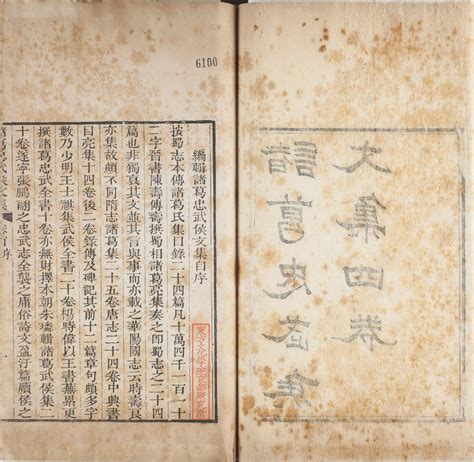 6100
諸葛忠武侯
文集四卷
編輯諸葛忠武侯文集自序
按蜀志本傳諸葛氏集目錄二十四篇凡十萬四千一百一十
二字晉書陳壽傳壽撰蜀相諸葛亮集奏之即蜀志之二十四
篇也非獨裒其文並其言與事而亦載之華陽國志云時壽良
亦集故頗不同隋志諸葛集二十五卷唐志二十四卷中興書
目亮集十四卷後二卷錄傳及碑觀其前十二篇章句頗多字
數乃少明王士騏集武侯全書二十卷楊時偉以王書蕪累更
撰諸葛忠武全書十卷亦無財擇本朝朱璘輯諸葛武侯集二
十卷遂寧張鵬翮之忠武志全襲之庸俗詩文盈汙篇牘侯之